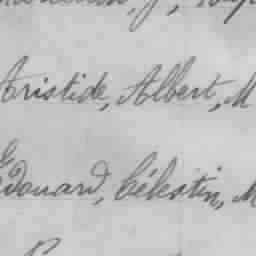 Aristide, Albert, M
Edouard, Célestin, M